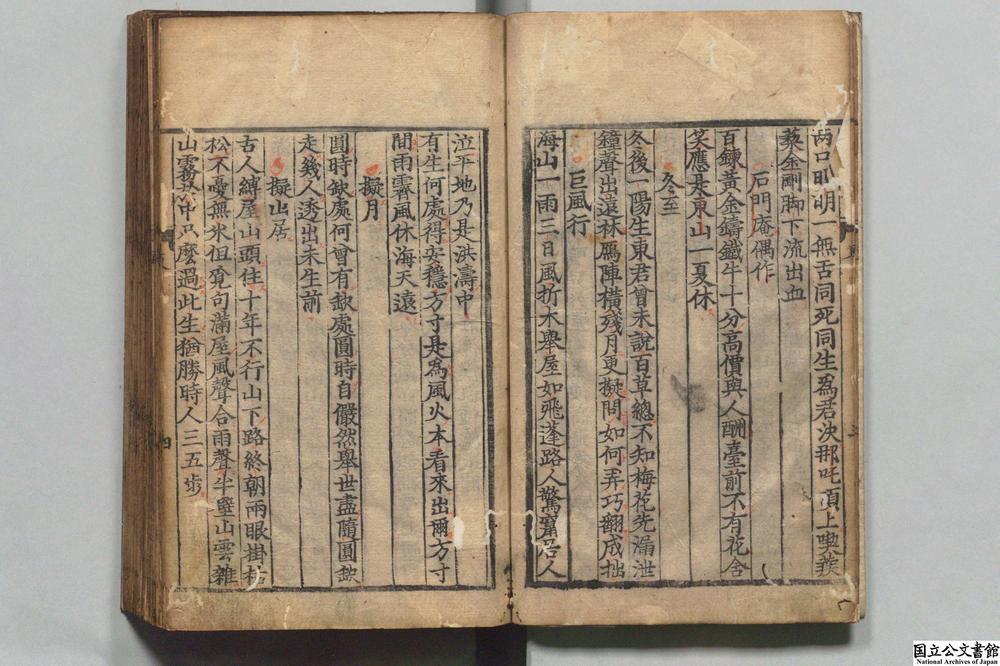 两口明明一無舌同死同生爲君决那吒頂上喫蒺
蔾金剛脚下流出血
石門庵偶作
百鍊黃金鑄鐵牛十分高價與人酬臺前不有花含
笑應是東山一夏休
冬至
冬後一陽生東君曾未說百草總不知梅花先漏泄
鐘聲出遠林鴈陣橫殘月更擬問如何弄巧翻成拙
巨風行
海山一雨三日風折木舉屋如飛蓬路人驚竄居人
泣平地乃是洪濤中
有生何處得安穩方寸是爲風火本看來出爾方寸
間雨霽風休海天遠
擬月
圓時缺處何曾有缺處圓時自儼然舉世盡隨圓缺
走幾人透出未生前
擬山居
古人縛屋山頭住十年不行山下路終朝兩眼掛枯
松不憂無米但覓句滿屋風聲合雨聲半壁山雲雜
山霧 中只麽過此生猶勝時人三五步
四
国立公文書館
National Archives of Japan